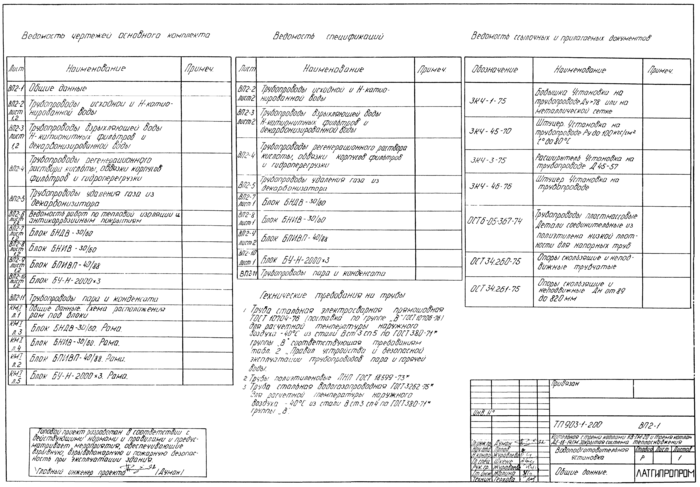 Ведомость чертежей основного комплекта
Лист
Наименование
Примеч.
ВП2-1 Общие данные
ВП2-2 лист 1,2 Трубопроводы исходной и Н-катио-
нированной воды
ВП2-3 лист 1,2 Трубопроводы взрыхляющей воды
Н-катионитных фильтров и
декарбонизированной воды
ВП2-4 Трубопроводы регенерационного
раствора кислоты, обвязки корпусов
фильтров и гидроперегрузки
ВП2-5 Трубопроводы удаления газа из
декарбонизатора
ВП2-6 Ведомость работ по тепловой изоляции и
антикоррозийным покрытиям
ВП2-7 Блок БНДВ-30/60
ВП2-8 Блок БНИВ-30/60
ВП2-9 Блок БПИВП-40/88
ВП2-10 Блок БЧ-Н-2000×3
ВП2-11 Трубопроводы пара и конденсата
КМ1 л.1 Общие данные. Схема расположения
рам под блоки
КМ1 л.3 Блок БНДВ-30/60. Рама.
КМ1 л.4 Блок БНИВ-30/60. Рама.
КМ1 л.2 Блок БПИВП-40/88. Рама.
КМ1 л.5 Блок БЧ-Н-2000×3. Рама.
Типовой проект разработан в соответствии с
действующими нормами и правилами и предус-
матривает мероприятия, обеспечивающие
взрывную, взрывопожарную и пожарную безопас-
ность при эксплуатации здания
Главный инженер проекта (Дунан)
Ведомость спецификаций
Лист
Наименование
Примеч
ВП2-2 лист2 Трубопроводы исходной и Н-катио-
нированной воды
ВП2-3 лист2 Трубопроводы взрыхляющей воды
Н-катионитных фильтров и
декарбонизированной воды
ВП2-4 Трубопроводы регенерационного раствора
кислоты, обвязки корпусов фильтров
и гидроперегрузки
ВП2-5 Трубопроводы удаления газа из
декарбонизатора
ВП2-7 Блок БНДВ-30/60
ВП2-8 Блок БНИВ-30/60
ВП2-9 Блок БПИВП-40/88
ВП2-10 Блок БЧ-Н-2000×3
ВП2-11 Трубопроводы пара и конденсата
Технические требования на трубы
1. Труба стальная электросварная прямошовная
ГОСТ 10704-76 (поставка по группе "В" ГОСТ 10706-76)
для расчетной температуры наружного
воздуха -40°С из стали ВСт3сп5 по ГОСТ 380-71*
группы "В" соответствующая требованиям
табл. 2 "Правил устройства и безопасной
эксплуатации трубопроводов пара и горячей
воды.
2. Трубы полиэтиленовые ПНП ГОСТ 18599-73*
3. Труба стальная водогазопроводная ГОСТ 3262-75*
для расчетной температуры наружного
воздуха -40°С из стали ВСт3сп4 по ГОСТ 380-71*
группы "В"
Ведомость ссылочных и прилагаемых документов
Обозначение
Наименование
Примеч.
ЗКЧ-1-75 Бобышка. Установка на
трубопроводе Ду≥76 или на
металлической стенке
ЗКЧ-45-70 Штуцер. Установка на
трубопроводе Ру до 100 кгс/см²
t° до 80°С
ЗКЧ-3-75 Расширитель. Установка на
трубопроводе Д 45-57
ЗКЧ-46-76 Штуцер. Установка на
трубопроводе
ОСТ6-05-367-74 Трубопроводы пластмассовые
Детали соединительные из
полиэтилена низкой плот-
ности для напорных труб
ОСТ 34.260-75 Опоры скользящие и непод-
вижные трубчатые
ОСТ 34.261-75 Опоры скользящие и
неподвижные Дн от 89
до 820 мм
Привязан
Инв. №
ТП 903-1-200 ВП2-1
Водоподготовительная
установка
Лист
Листов
Р 1
Общие данные.
ЛАТГИПРОПРОМ